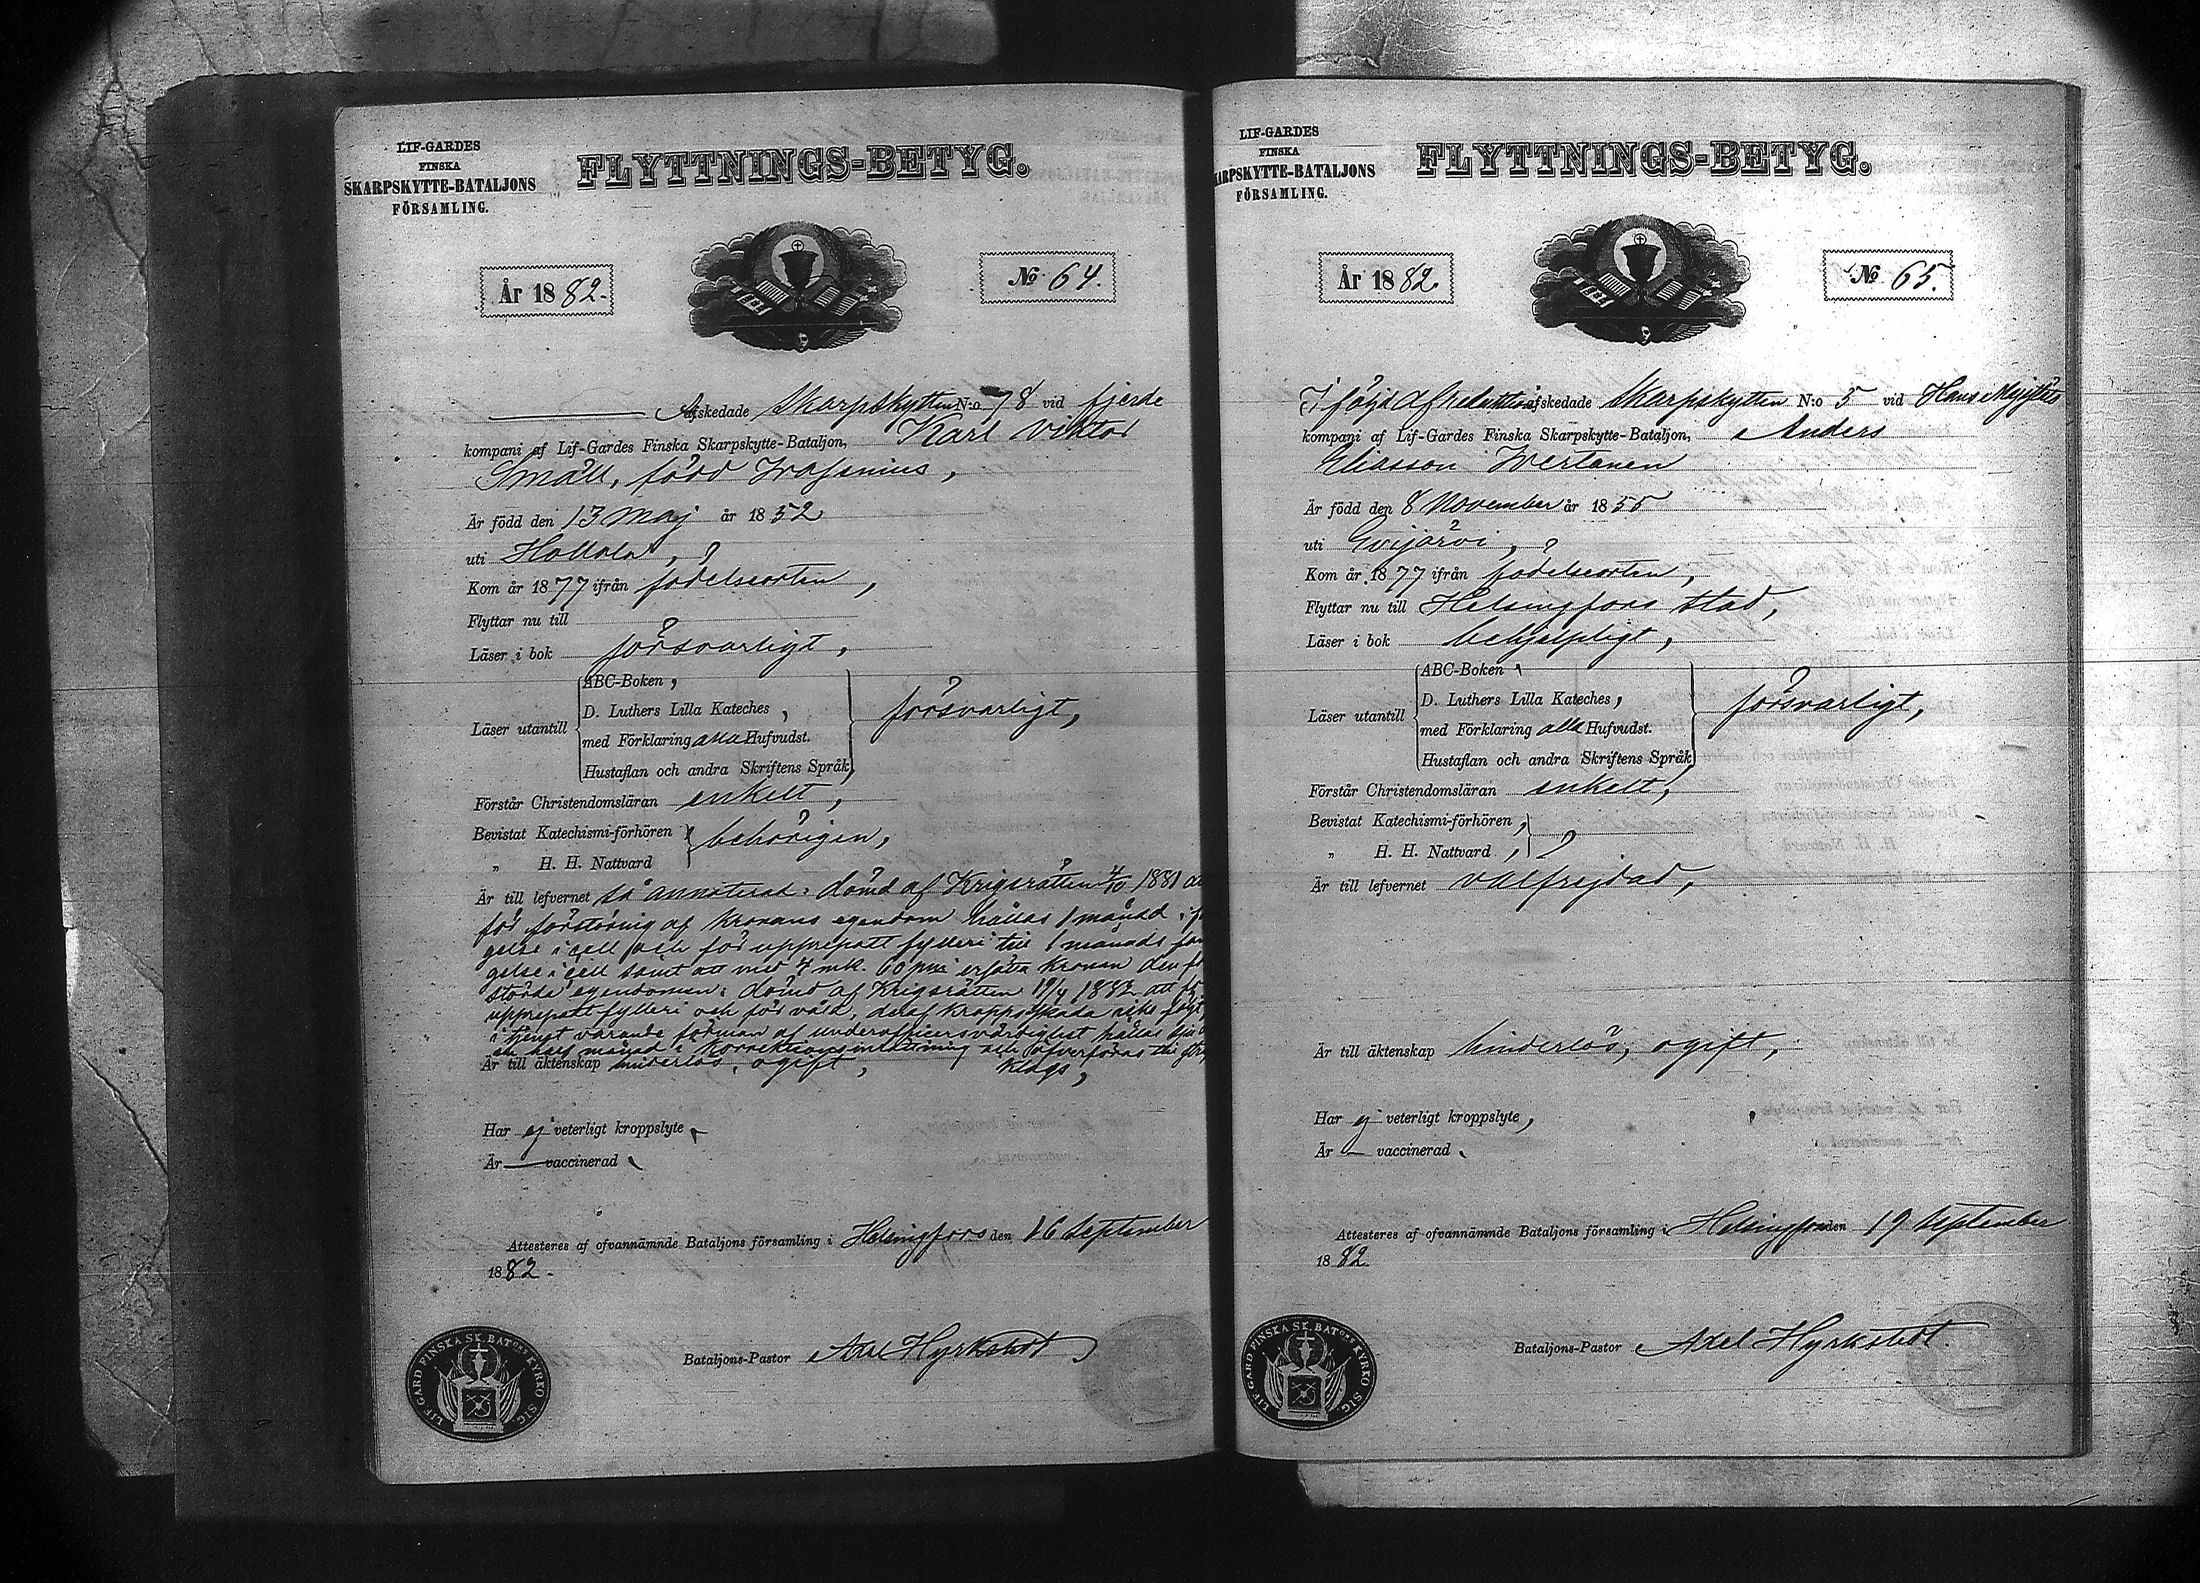 LIF-GARDES
FINSKA
SKARPSKYTTE-BATALJONS
FÖRSAMLING.
FLYTTNINGS-BETYG.
År 1882.
No 64.
Afskedade Skarpskytten N:o 78 vid fjerde
kompani af Lif-Gardes Finska Skarpskytte-Bataljon, Karl Viktor
Småll, född
Är född den 13 Maj år 1852
uti Hollola, ?
Kom år 1877 ifrån födelseorten,
Flyttar nu till
Läser i bok försvarligt,
Läser utantill
ABC-Boken,
D. Luthers Lilla Kateches,
med Förklaring alla Hufvudst.
Hustaflan och andra Skriftens Språk,
försvarligt,
Förstår Christendomsläran enkelt,
Bevistat Katechismi-förhören
„ H. H. Nattvard
behörigen,
Är till lefvernet så annoterad: dömd af Krigsrätten 4/10 1881 att
för förstöring af Kronans egendom hållas 1 månad i fän
gelse i cell och för upprepadt fylleri till 1 månads fän
gelse i cell samt att med 4 mk. 60 pni ersätta Kronan den för
störda egendomen; dömd af Krigsrätten 19/4 1882 att för
upprepadt fylleri och för våld, deraf kroppsskada icke följt,
i tjenst varande förman af underofficersvärdighet hållas
en half månad i Korrektionsinrättning och öfverföras till
klass,
Är till äktenskap hinderlös, ogift,
Har ej veterligt kroppslyte,
Är — vaccinerad,
Attesteres af ofvannämnde Bataljons församling i Helsingfors den 16 September
1882.
Bataljons-Pastor Axel Hyrkstedt
LIF GARD FINSKA SK. BATONS KYRKO SIG.
LIF-GARDES
FINSKA
SKARPSKYTTE-BATALJONS
FÖRSAMLING.
FLYTTNINGS-BETYG.
År 1882.
No 65.
I följd af reduktion afskedade Skarpskytten N:o 5 vid Hans Majestäts
kompani af Lif-Gardes Finska Skarpskytte-Bataljon, Anders
Eliasson Wertanen
Är född den 8 November år 1855
uti Evijärvi, ?
Kom år 1877 ifrån födelseorten,
Flyttar nu till Helsingfors stad,
Läser i bok behjelpligt,
Läser utantill
ABC-Boken,
D. Luthers Lilla Kateches,
med Förklaring alla Hufvudst.
Hustaflan och andra Skriftens Språk
försvarligt,
Förstår Christendomsläran enkelt,
Bevistat Katechismi-förhören,
„ H. H. Nattvard, ?
Är till lefvernet välfrejdad,
Är till äktenskap hinderlös, ogift,
Har ej veterligt kroppslyte,
Är — vaccinerad,
Attesteres af ofvannämnde Bataljons församling i Helsingfors den 19 September
1882.
Bataljons-Pastor Axel Hyrkstedt.
LIF GARD FINSKA SK. BATONS KYRKO SIG.